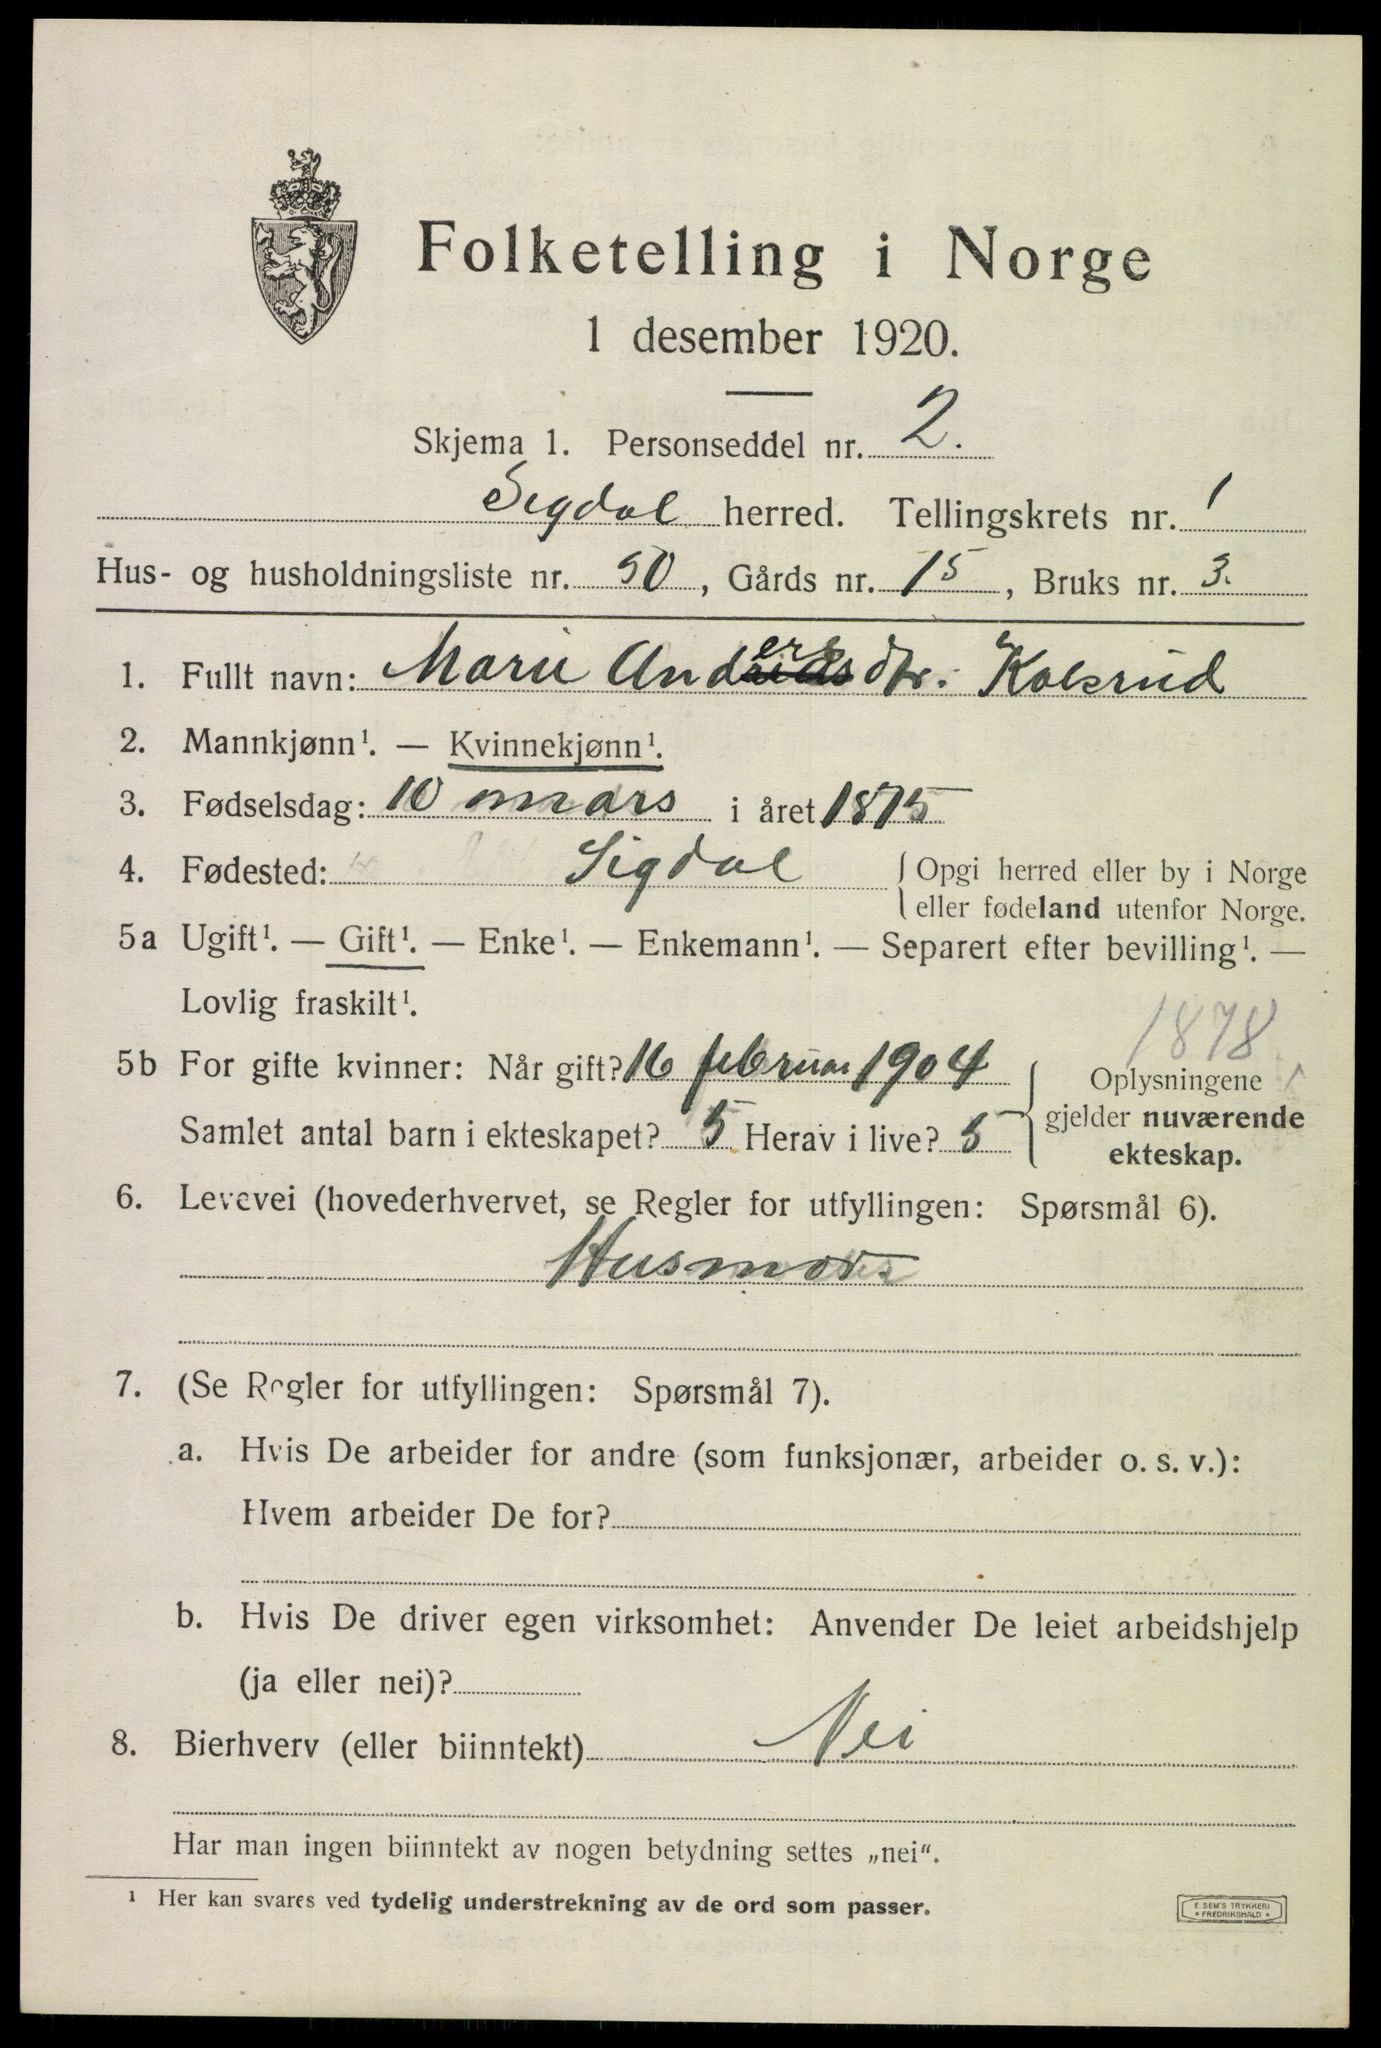 Folketelling i Norge
1 desember 1920.
Skjema 1. Personseddel nr. 2.
Sigdal herred. Tellingskrets nr. 1
Hus- og husholdningsliste nr. 50, Gårds nr. 15, Bruks nr. 3.
1. Fullt navn: Marie Andersdtr. Kolsrud
2. Mannkjønn¹. — Kvinnekjønn¹.
3. Fødselsdag: 10 mars i året 1875
4. Fødested: Sigdal { Opgi herred eller by i Norge
eller fødeland utenfor Norge.
5a Ugift¹. — Gift¹. — Enke¹. — Enkemann¹. — Separert efter bevilling¹. —
Lovlig fraskilt¹.
1878
5b For gifte kvinner: Når gift? 16 februar 1904
Samlet antal barn i ekteskapet? 5 Herav i live? 5
Oplysningene
gjelder nuværende
ekteskap.
6. Levevei (hovederhvervet, se Regler for utfyllingen: Spørsmål 6).
Husmor
7. (Se Regler for utfyllingen: Spørsmål 7).
a. Hvis De arbeider for andre (som funksjonær, arbeider o. s. v.):
Hvem arbeider De for?
b. Hvis De driver egen virksomhet: Anvender De leiet arbeidshjelp
(ja eller nei)?
8. Bierhverv (eller biinntekt) Nei
Har man ingen biinntekt av nogen betydning settes „nei“.
¹ Her kan svares ved tydelig understrekning av de ord som passer.
E. SEM'S TRYKKERI
• FREDRIKSHALD •